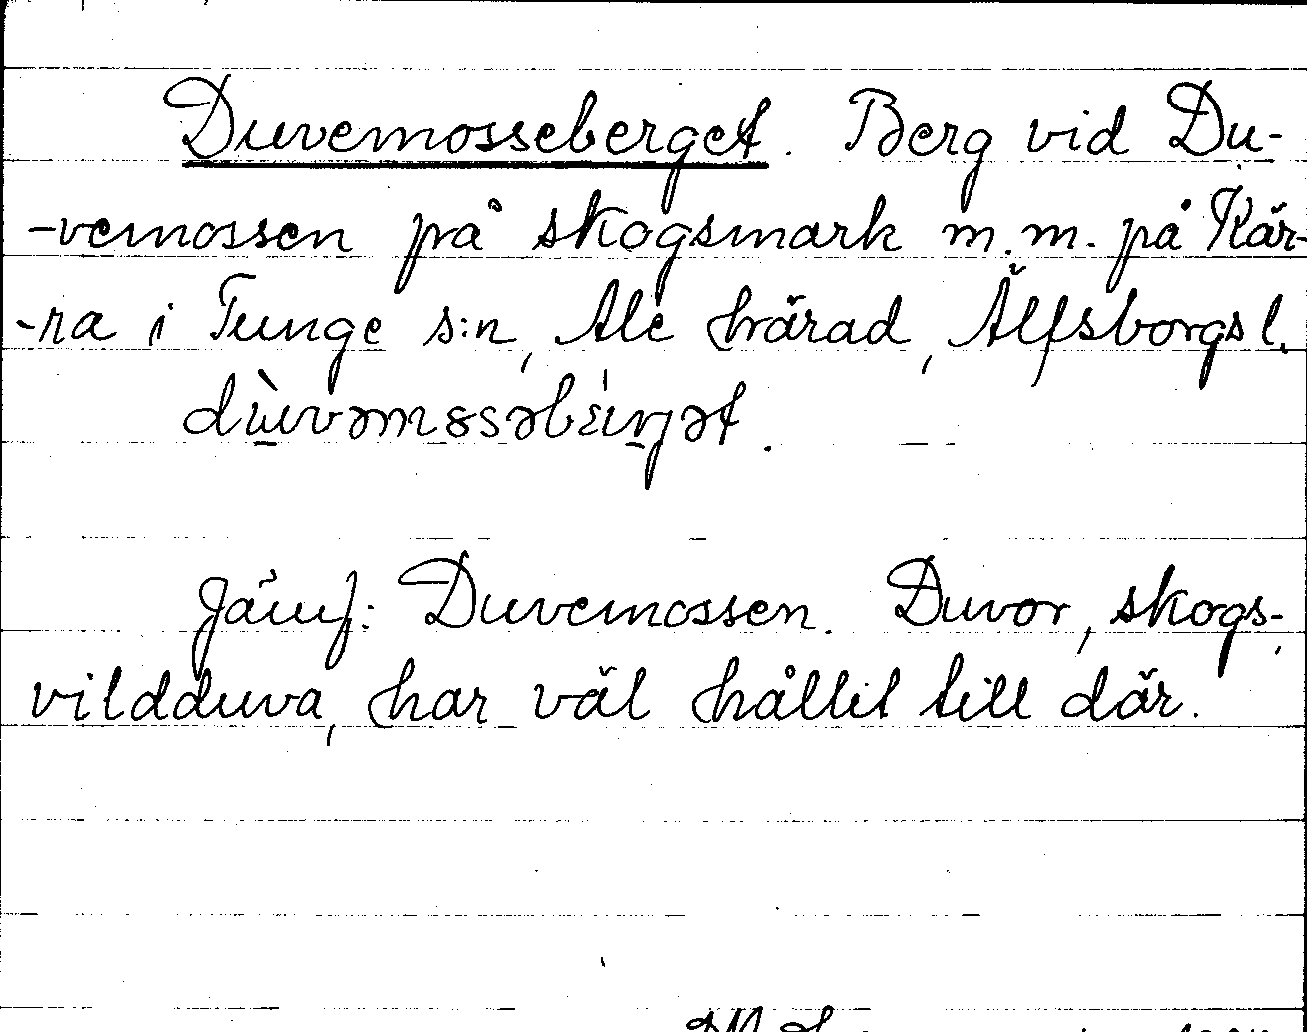 Duvemosseberget. Berg vid Du-
-vemossen på skogsmark m.m. på Kär-
-ra i Tunge s:n, Ale härad, Älfsborgs l.
Jämf: Duvemossen. Duvor, skogs-,
vildduva, har väl hållit till där.